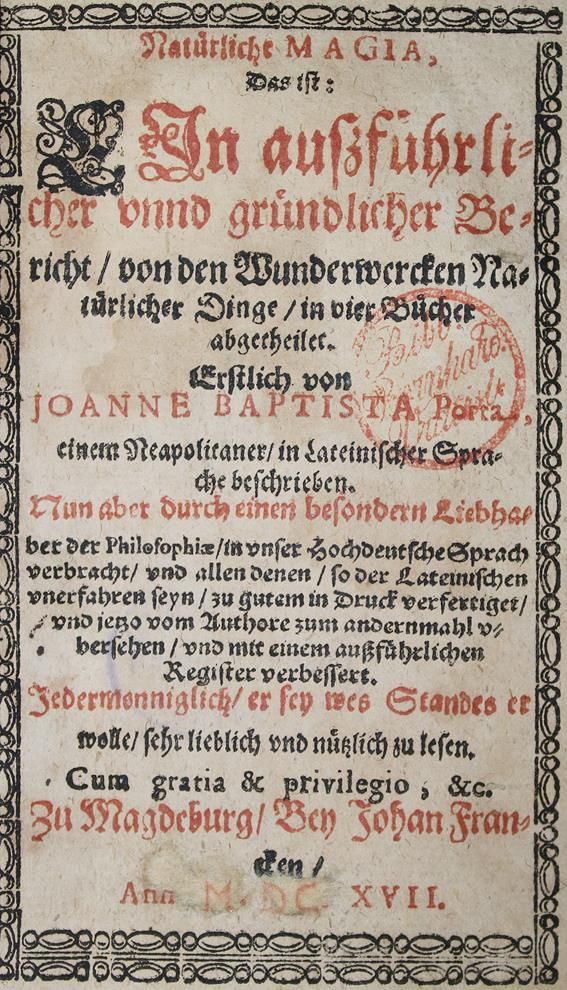 Natürliche MAGIA,
Das ist:
EIn außführli-
cher vnnd gründlicher Be-
richt / von den Wunderwercken Na-
türlicher Dinge / in vier Bücher
abgetheilet.
Erstlich von
JOANNE BAPTISTA Porta,
einem Neapolitaner / in Lateinischer Spra-
che beschrieben.
Nun aber durch einen besondern Liebha-
ber der Philosophiæ / in vnser Hochdeutsche Sprach
verbracht / vnd allen denen / so der Lateinischen
vnerfahren seyn / zu gutem in Druck verfertiget /
vnd jetzo vom Authore zum andernmahl v-
bersehen / vnd mit einem außführlichen
Register verbessert.
Jedermenniglich / er sey wes Standes er
wolle / sehr lieblich vnd nützlich zu lesen.
Cum gratia & privilegio, &c.
Zu Magdeburg / Bey Johan Fran-
cken /
Ann M. DC. XVII.